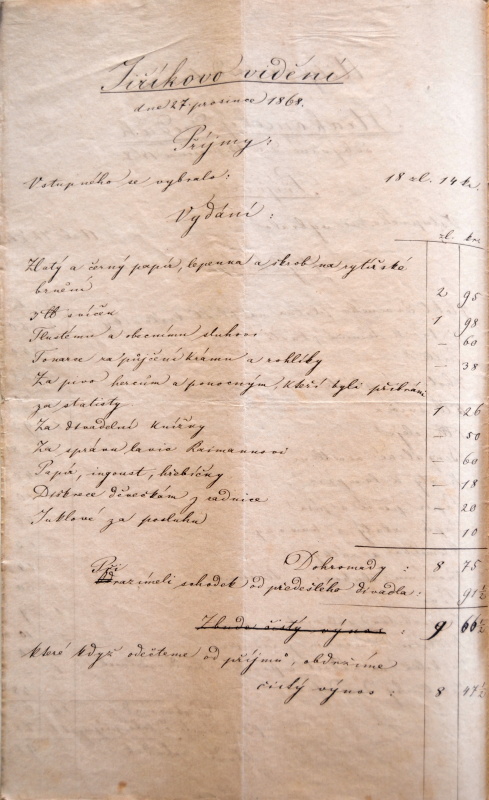 Jiříkovo vidění
dne 27. prosince 1868.
Příjmy:
Vstupného se vybralo: 18 zl. 14 kr.
Vydání:
zl. kr.
Zlatý a černý papír, lepenka a škrob na rytířské
brnění 2 95
svíček 1 98
Tlustému a obecnímu sluhovi — 60
za půjčení krámu a rohlíky — 38
Za pivo hercům a ponocným, kteří byli přibráni
za statisty 1 26
Za divadelní knížky — 50
Za správu lavic Raimannovi — 60
Papír, ingoust, hřebíčky — 18
Diškrece děvečkám z radnice — 20
Juklové za posluhu — 10
Dohromady: 8 75
Při schodek od předešlého divadla: 91½
Zbude čistý výnos: 9 66½
které když odečteme od příjmů, obdržíme
čistý výnos: 8 47½